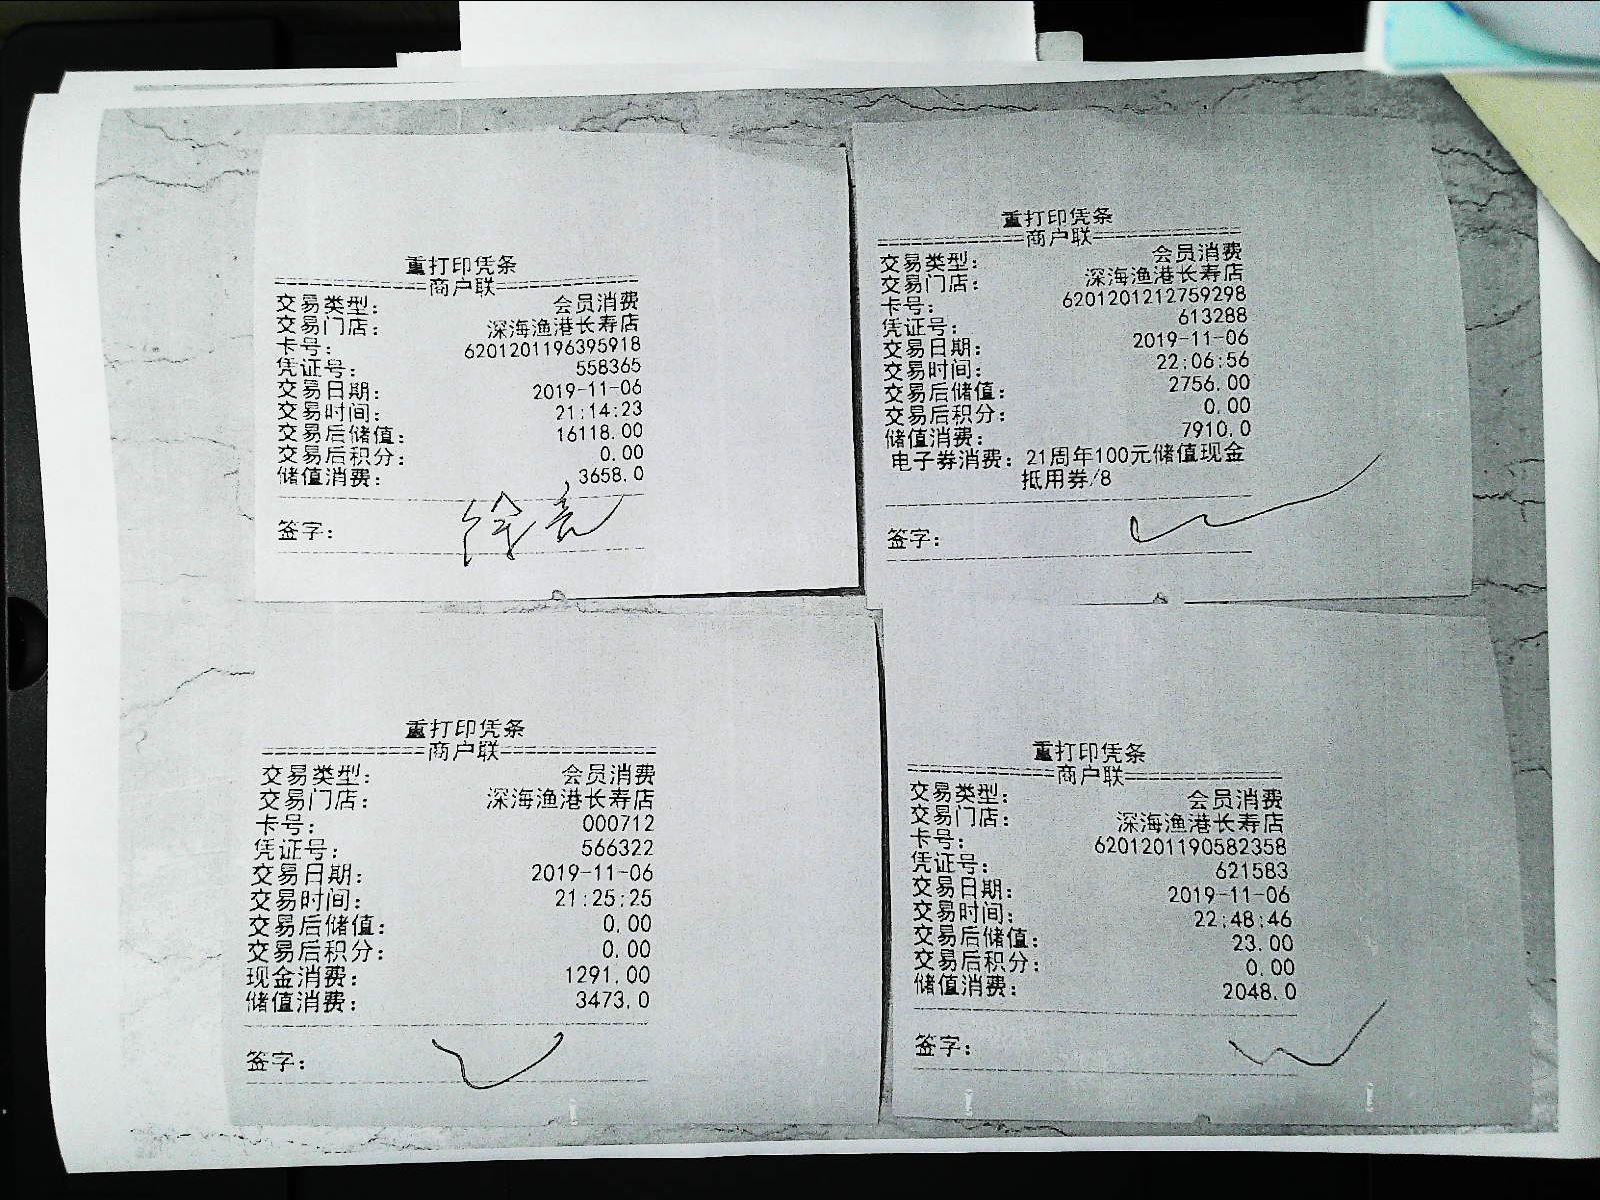 重打印凭条
============商户联============
交易类型： 会员消费
交易门店： 深海渔港长寿店
卡号： 6201201196395918
凭证号： 558365
交易日期： 2019-11-06
交易时间： 21:14:23
交易后储值： 16118.00
交易后积分： 0.00
储值消费： 3658.0
签字： 徐亮
重打印凭条
============商户联============
交易类型： 会员消费
交易门店： 深海渔港长寿店
卡号： 6201201212759298
凭证号： 613288
交易日期： 2019-11-06
交易时间： 22:06:56
交易后储值： 2756.00
交易后积分： 0.00
储值消费： 7910.0
电子券消费：21周年100元储值现金
抵用券/8
签字：
重打印凭条
============商户联============
交易类型： 会员消费
交易门店： 深海渔港长寿店
卡号： 000712
凭证号： 566322
交易日期： 2019-11-06
交易时间： 21:25:25
交易后储值： 0.00
交易后积分： 0.00
现金消费： 1291.00
储值消费： 3473.0
签字：
重打印凭条
============商户联============
交易类型： 会员消费
交易门店： 深海渔港长寿店
卡号： 6201201190582358
凭证号： 621583
交易日期： 2019-11-06
交易时间： 22:48:46
交易后储值： 23.00
交易后积分： 0.00
储值消费： 2048.0
签字：